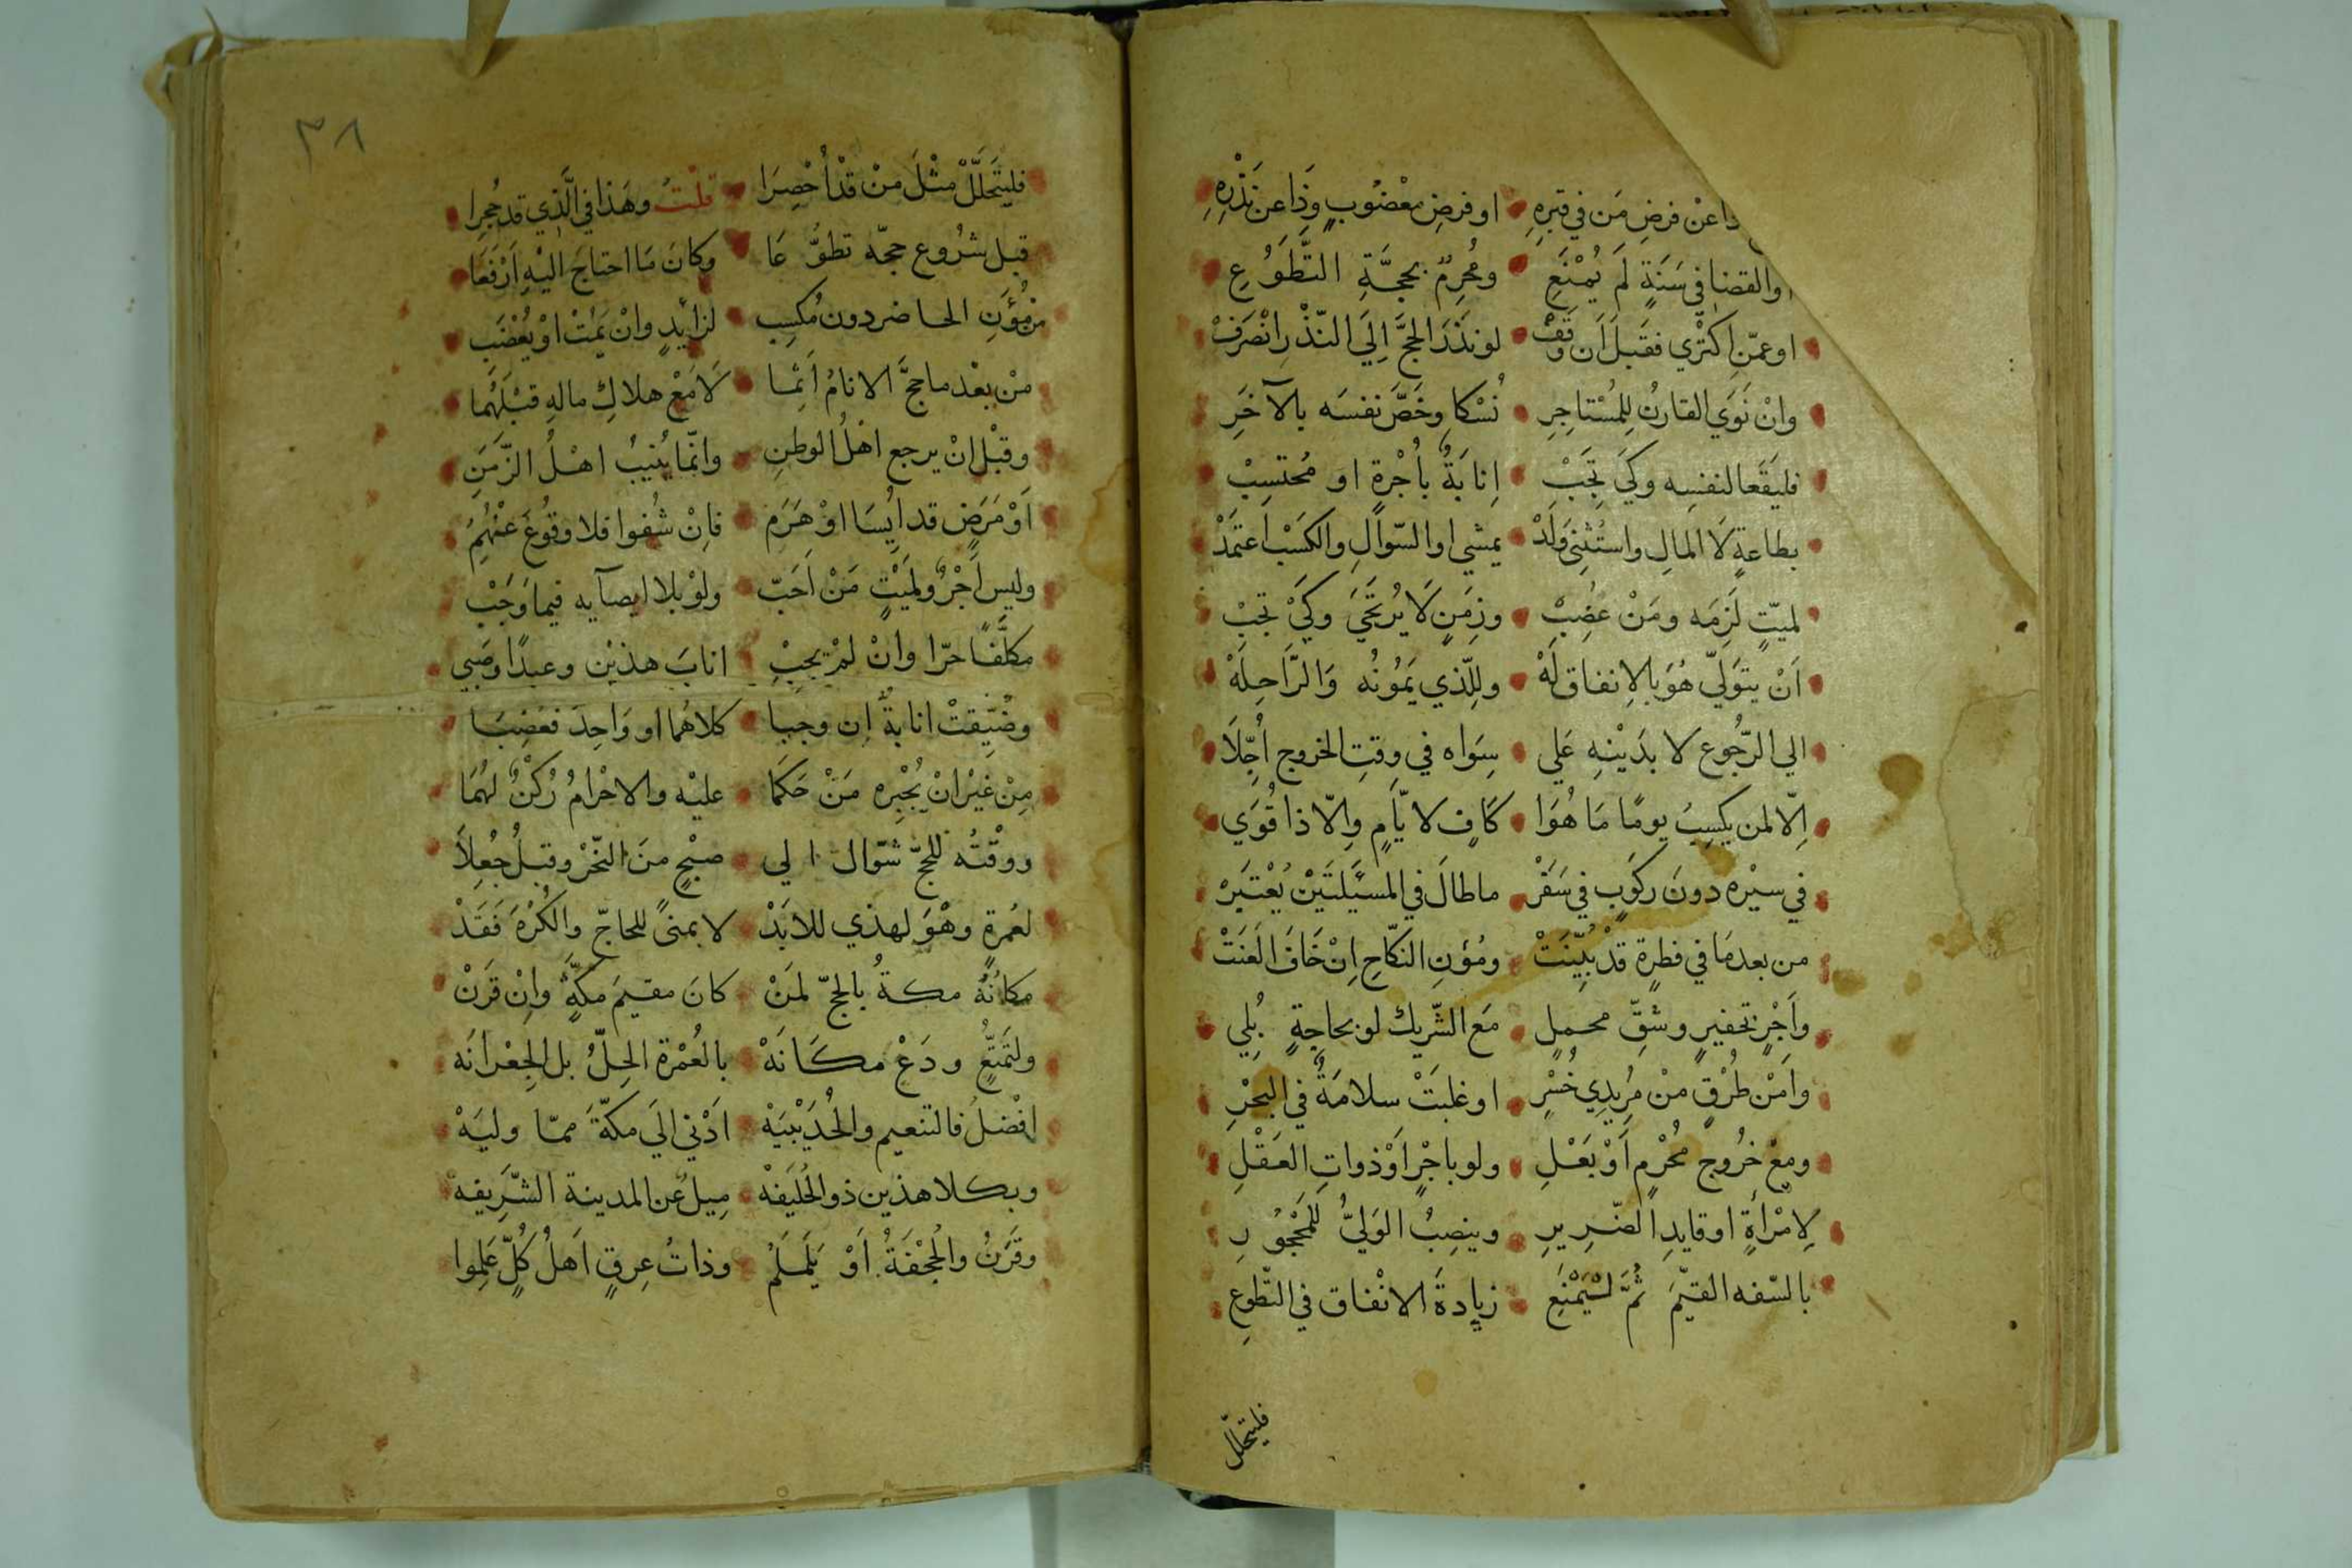 ذا عنْ فرضِ مَن في قبرِهِ اوفرضِ معْضُوبٍ وَذَا عن نَذْرِهِ
والقضا في سَنَةٍ لَم يُمْنَعِ ومُحرِمٌ بحجَّةِ التَّطَوُّعِ
اوعمّن اكتْري فقَبلَ اَن وَقَفْ لونَذَرَ الحجَّ اِلَي النّذْرِ انْصَرَفْ
وانْ نَوَي القارنُ لِلمُسْتاجِرِ نُسْكا وخَصَّ نفسَه بالآخَرِ
فليَقَعا لنفسِه وكَيْ تَجِبْ اِنابَةٌ بأُجْرةٍ او مُحتسِبْ
بطاعةٍ لَا المالِ واستُثْنِيَ وَلَدْ يمشي او السّوالِ والكَسْبِ اعتمَدْ
لميّتٍ لَزِمَه ومَنْ عُضِبْ وزمَنٍ لَا يُرتَجَيَ وكَيْ تَجِبْ
اَنْ يتوَليّ هُوَ بالاِنفاق لَهْ وللّذي يَمُونُه وَالرَّاحِلَهْ
الي الرّجُوع لا بدَيْنِهِ عَلي سِوَاه في وقتِ الخروج اُجِّلَا
اِلّا لمن يكسِبُ يومًا مَا هُوَا كافٍ لايَّامٍ واِلّا ذا قُوَي
في سيْره دونَ ركَوبٍ في سَفَرْ ماطالَ في المسئَلتَيْن يُعْتبَرْ
من بعدمَا في فطرةٍ قدْ بُيِّنَتْ ومُؤَنِ النكّاحِ اِنْ خَافَ العَنَتْ
واَجْرِ تخفيرٍ وشقِّ محملٍ مَع الشّريك لو بحاجةٍ بُلي
واَمْن طُرْقٍ منْ مُريدِي خُسْرٍ اوغلبَتْ سلامَةٌ في البحْرِ
ومعْ خرُوج مُحْرمٍ اَوْ بَعْلِ ولو باجْرٍ اَوْ ذواتِ العَقْلِ
لِامْرأةٍ او قايدِ الضّريرِ وينصِبُ الوَليُّ للمَحْجُورِ
بالسّفه القيّمَ ثُمَّ لْيَمْنَعِ زيادةَ الانْفاق في التّطوعِ
فليتحلّل
٣٨
فليتَحلَّلْ مثْلَ منْ قدْ أُحْصِرَا قلْتُ وهَذا في الَّذِي قد حُجِرا
قبل شرُوع حجّه تطوُّعَا وكانَ مَا احتاجَ اليْهِ اَرْفَعَا
من مُؤَنِ الحاضر دون مُكسِبِ لزائدٍ وانْ يَمُتْ اوْ يُعْضَبِ
منْ بعْد ما حجَّ الانامُ اَثِمَا لَا مَعْ هلاكِ مالهِ قبْلَهُما
وقبْل انْ يرجع اهْلُ الوطنِ وانّما يُنيبُ اهْلُ الزَّمَنِ
اَوْ مَرَضٍ قد ايِسَا اوْ هَرَمِ فاِنْ شُفوا فلا وقُوعَ عنْهُمِ
وليس اَجْرٌ ولميْتٍ مَنْ اَحَبّ ولوْ بلا ايصآيه فيما وَجَبْ
مكلَّفًا حرّا وانْ لمْ يجِبْ انابَ هذيْن وعبدًا وصَبي
وضُيِّقتْ انابةٌ اِن وجبا كلاهُما او وَاحِد فعُضِبَا
مِنْ غيْر انْ يُجْبِره مَنْ حَكَمَا عليْه والاحْرامُ رُكْنٌ لهُمَا
ووقْتُه للحجّ شوّال الي صبْحٍ منَ النّحْر وقبلُ جُعِلَا
لعُمرةٍ وهْوَ لهذي للابَدْ لا بمنىً للحاجّ والكُرْهَ فَقَدْ
مكانُهُ مكةُ بالحجّ لمَنْ كانَ مقيمَ مكّةٍ وانْ قرَنْ
ولتمَتُّعٍ ودَعْ مكانَهْ بالعُمْرة الحِلُّ بل الجِعْرانَه
افْضلُ فالتنعيم والحُدَيْبِيَهْ اَدْني الَي مكّةَ ممّا وليَهْ
وبكلا هذين ذو الحُليَفَهْ مِيلٌ عن المدينة الشَّرِيفه
وقَرَنُ والجُحْفَةُ اَوْ يَلَمْلَمُ وذاتُ عِرقٍ اَهلُ كُلٍّ عَلِموا